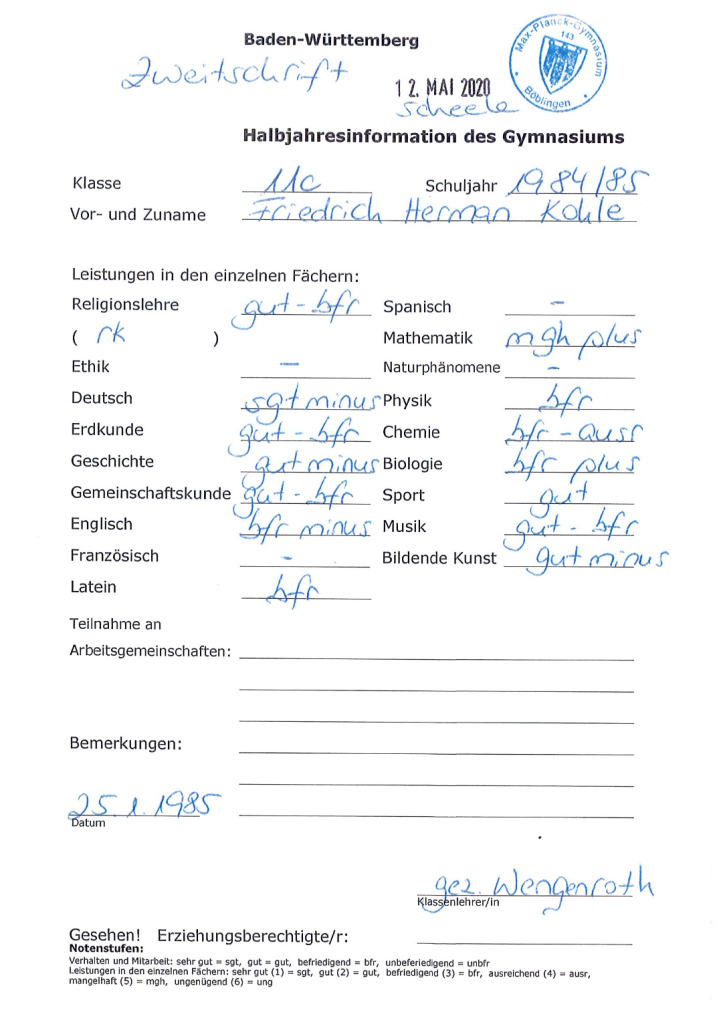 Baden-Württemberg
Max-Planck-Gymnasium
143
Böblingen
Zweitschrift
12. MAI 2020
Scheele
Halbjahresinformation des Gymnasiums
Klasse 11c Schuljahr 1984/85
Vor- und Zuname Friedrich Herman Kohle
Leistungen in den einzelnen Fächern:
Religionslehre gut - bfr Spanisch –
( rk ) Mathematik mgh plus
Ethik – Naturphänomene –
Deutsch sgt minus Physik bfr
Erdkunde gut - bfr Chemie bfr - ausr
Geschichte gut minus Biologie bfr plus
Gemeinschaftskunde gut - bfr Sport gut
Englisch bfr minus Musik gut - bfr
Französisch – Bildende Kunst gut minus
Latein bfr
Teilnahme an
Arbeitsgemeinschaften:
Bemerkungen:
25.1.1985
Datum
gez. Wengenroth
Klassenlehrer/in
Gesehen! Erziehungsberechtigte/r:
Notenstufen:
Verhalten und Mitarbeit: sehr gut = sgt, gut = gut, befriedigend = bfr, unbeferiedigend = unbfr
Leistungen in den einzelnen Fächern: sehr gut (1) = sgt, gut (2) = gut, befriedigend (3) = bfr, ausreichend (4) = ausr,
mangelhaft (5) = mgh, ungenügend (6) = ung